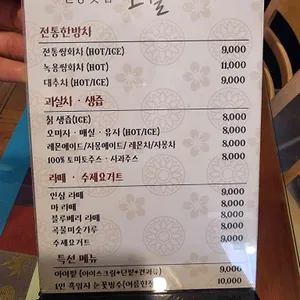 전통한방차
전통쌍화차 (HOT/ICE) 9,000
녹용쌍화차 (HOT) 11,000
대추차 (HOT/ICE) 9,000
과실차 · 생즙
칡 생즙(ICE) 8,000
오미자 · 매실 · 유자 (HOT/ICE) 8,000
레몬에이드/자몽에이드/ 레몬차/자몽차 8,000
100% 토마토주스 · 사과주스 8,000
라떼 · 수제요거트
인삼 라떼 9,000
마 라떼 8,000
블루베리 라떼 8,000
곡물미숫가루 8,000
수제요거트 9,000
특선 메뉴
아이팥 (아이스크림+단팥+견과류) 9,000
1인 흑임자 눈꽃빙수(여름한정) 10,000